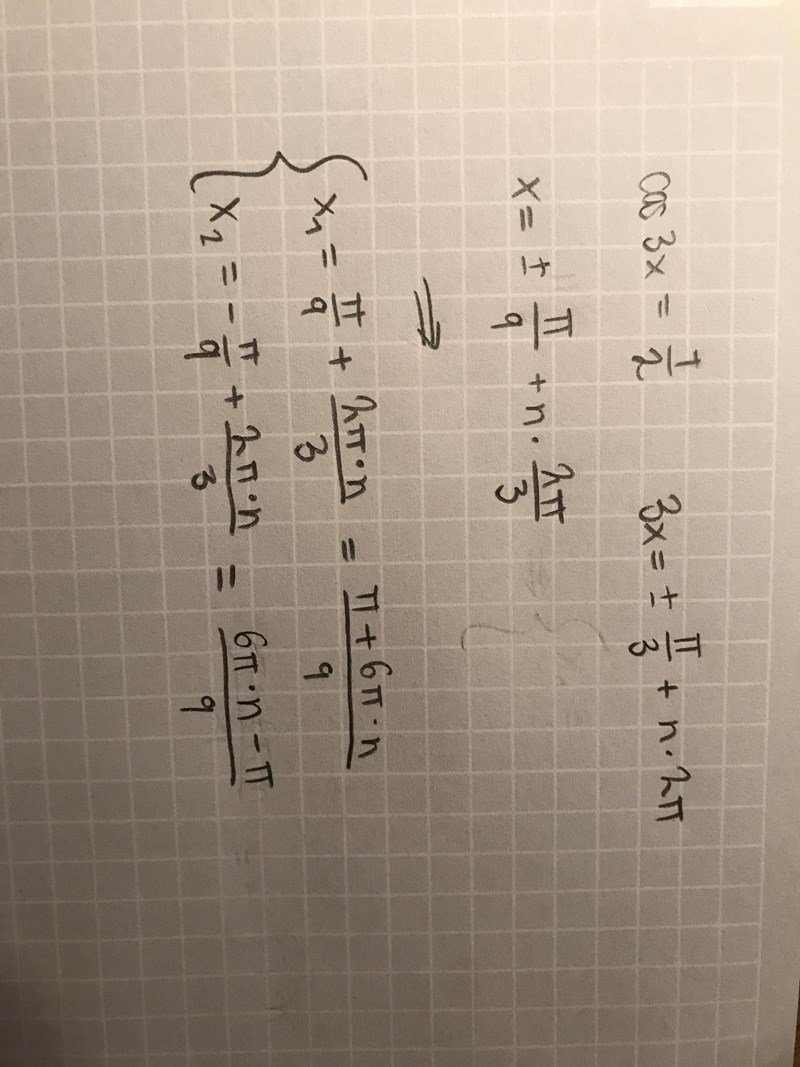 cos 3x = 1/2   3x = ± π/3 + n · 2π
x = ± π/9 + n · 2π/3
⇒
x₁ = π/9 + 2π·n/3 = π + 6π·n/9
x₂ = - π/9 + 2π·n/3 = 6π·n - π/9